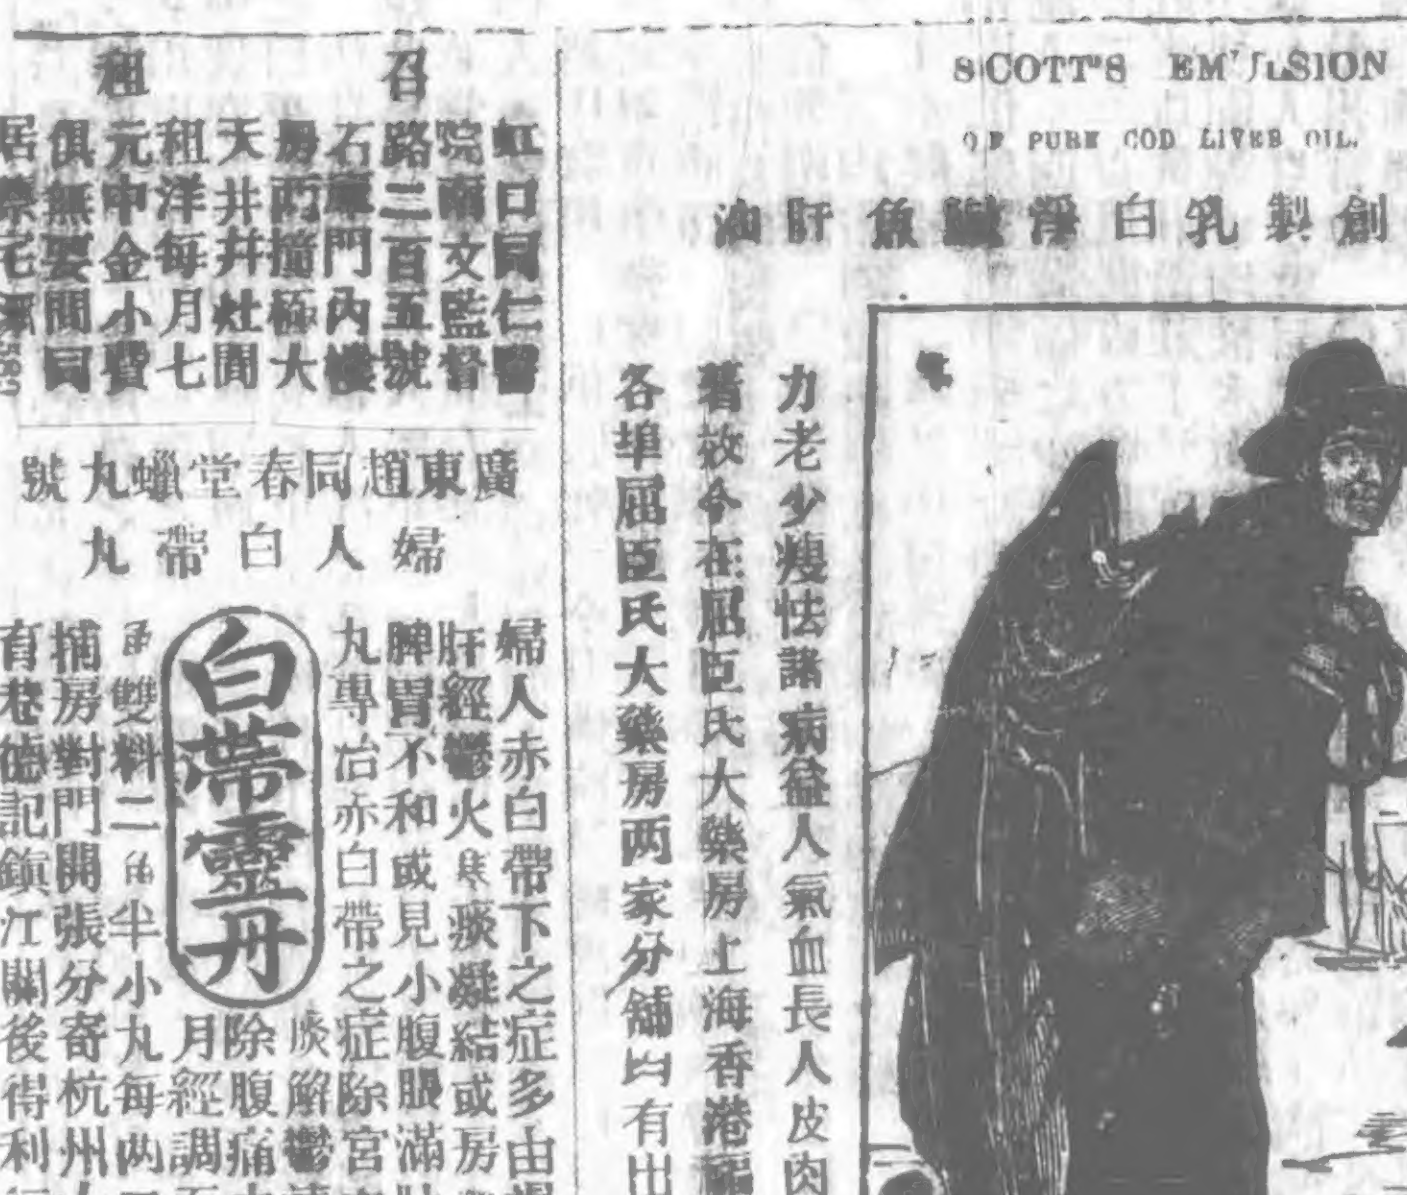 SCOTT'S EMULSION
OF PURE COD LIVER OIL.
創製乳白淨鰵魚肝油
力老少瘦怯諸病益人氣血長人皮肉
著效今在屈臣氏大藥房上海香港
各埠屈臣氏大藥房两家分舖均有出
召租
虹口同仁醫
院南文監督
路二百五號
石庫門內樓
房两撞極大
天井井灶間
租洋每月七
元中金小費
俱無要間同
居
廣東趙同春堂蠟丸號
婦人白帶丸
婦人赤白帶下之症多由
肝經鬱火寒痰凝結或房
脾胃不和或見小腹脹滿
丸專治赤白帶之症除宮
痰解鬱
除腹痛
月經調
白帶靈丹
雙料二角半小丸每两
捕房對門開張分寄杭州
育巷德記鎮江關後得利